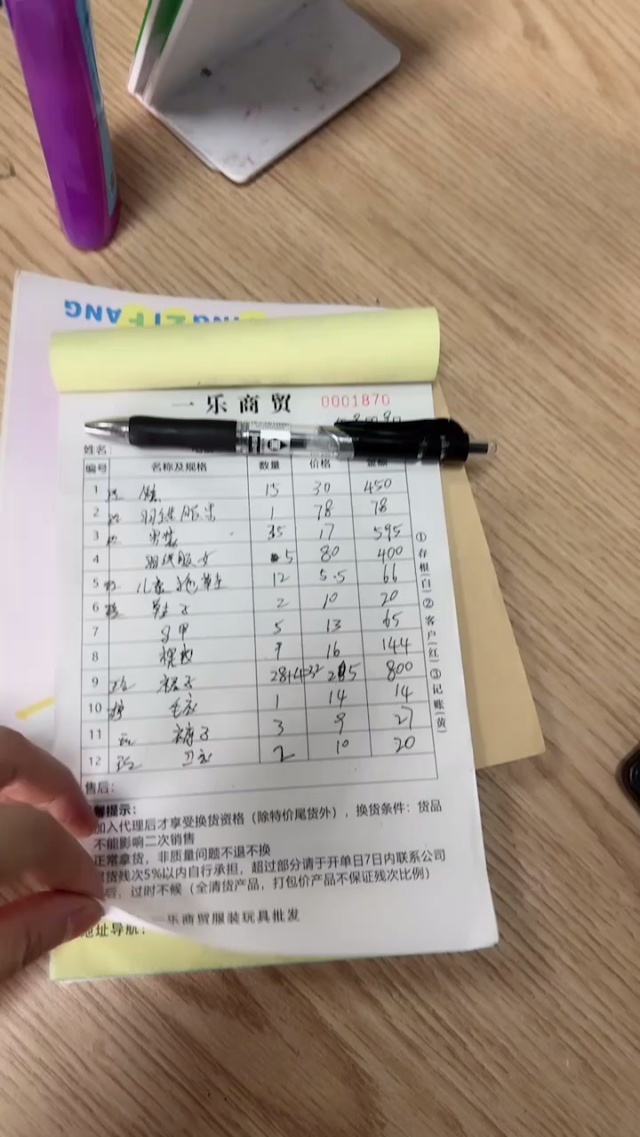 一乐商贸 0001870
姓名
编号 名称及规格 数量 价格 金额
1 15 30 450
2 羽绒服 1 78 78
3 35 17 595
4 羽绒服 女 5 80 400
5 儿童 12 5.5 66
6 2 10 20
7 马甲 5 13 65
8 9 16 144
9 裙子 28+4=32 25 800
10 毛衣 1 14 14
11 裤子 3 9 27
12 卫衣 2 10 20
①存根(白)②客户(红)③记账(黄)
售后:
提示:
加入代理后才享受换货资格(除特价尾货外),换货条件:货品
不能影响二次销售
正常拿货,非质量问题不退不换
货残次5%以内自行承担,超过部分请于开单日7日内联系公司
后,过时不候(全清货产品,打包价产品不保证残次比例)
一乐商贸服装玩具批发
地址导航: